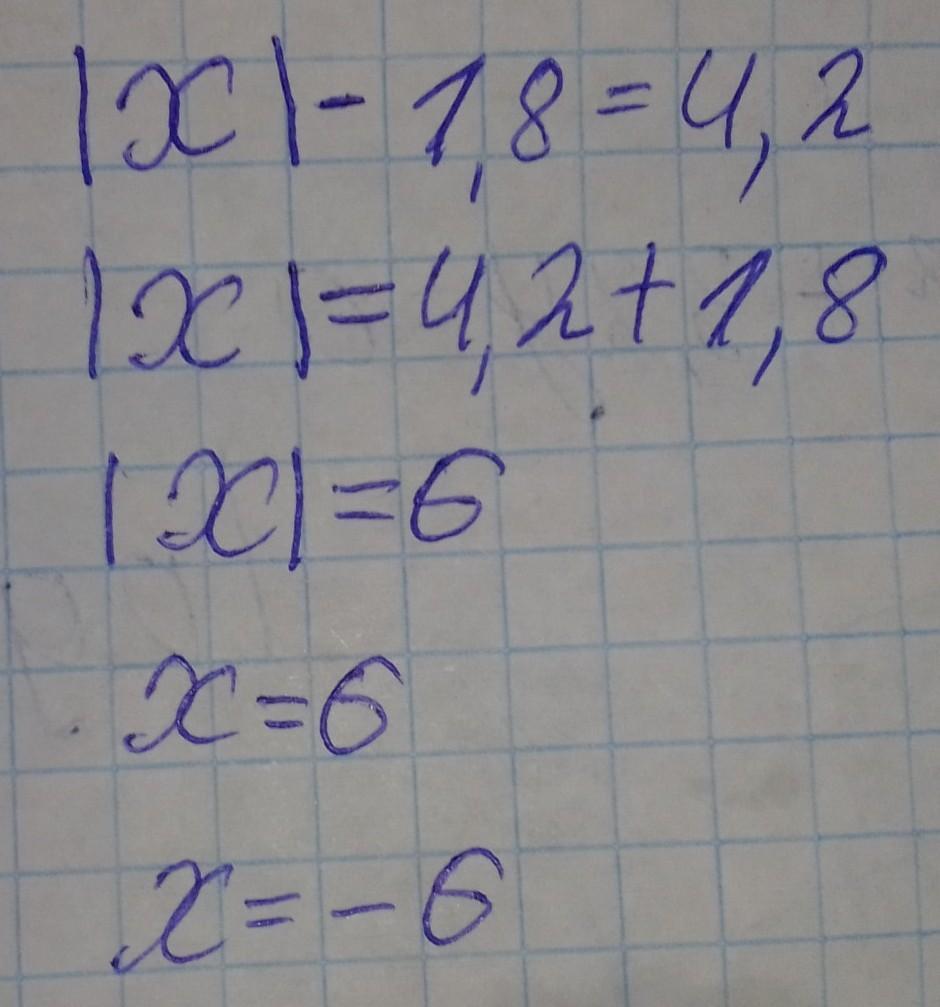 |x| - 1,8 = 4,2
|x| = 4,2 + 1,8
|x| = 6
x = 6
x = - 6